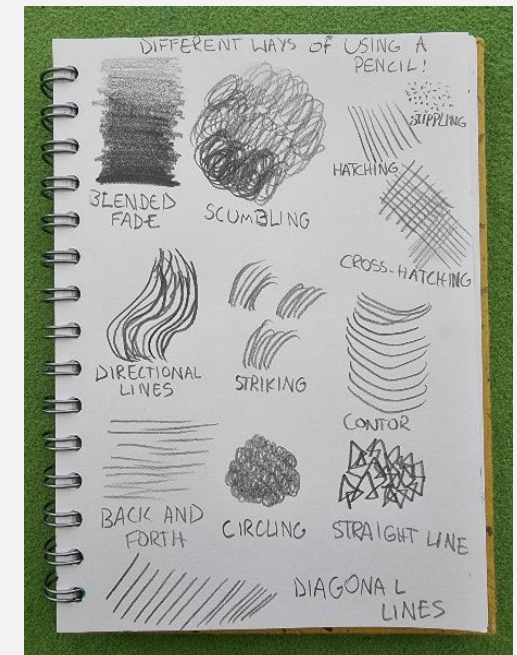 DIFFERENT WAYS of USING A
PENCIL!
STIPPLING
HATCHING
BLENDED
FADE
SCUMBLING
CROSS-HATCHING
DIRECTIONAL
LINES
STRIKING
CONTOR
BACK AND
FORTH
CIRCLING
STRAIGHT LINE
DIAGONAL
LINES